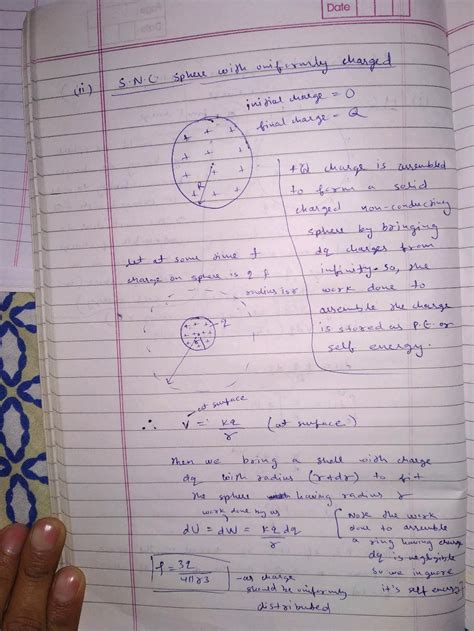 Date
Date
(ii) S.N.C. Sphere with uniformly charged
initial charge = 0
final charge = Q
R
+Q charge is assembled
to form a solid
charged non-conducting
sphere by bringing
dq charges from
infinity. So, the
work done to
assemble the charge
is stored as P.E or
self energy.
Let at some time t
charge on sphere is q &
radius is r
q
r
at surface
∴ V = kq/r (at surface)
Then we bring a shell with charge
dq with radius (r+dr) to fit
the sphere having radius r
work done by us
dU = dW = kq/r dq
[Note the work
done to assemble
a ring having charge
dq is negligible
so we ignore
it's self energy]
ρ = 3q/4πr3 - as charge
should be uniformly
distributed